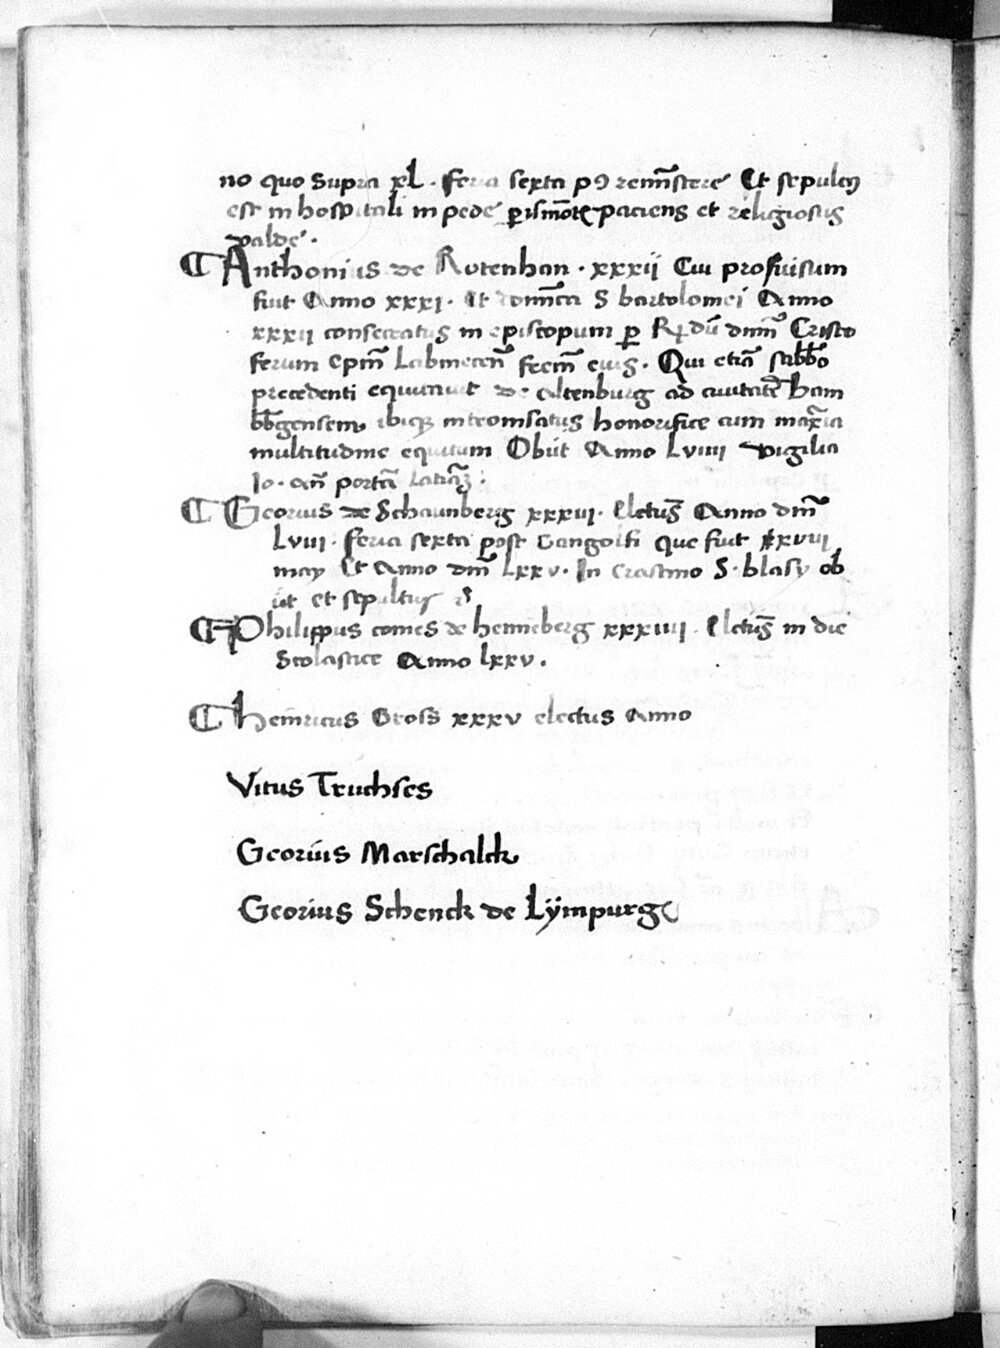 no quo supra xl. feria sexta p9 remīscere Et sepult9
est in hospitali in pede paciens et religiosus
valde.
Anthonius de Rotenhan. xxxij Cui provisum
fuit Anno xxxj. Et domīca S bartolomei Anno
xxxij consecratus in episcopum p dūm Cristo
ferum Epm̄ eius. Qui etiā sabbō
precedenti equitavit de altenburg ad civitatē bam
bgensem, ibiq intromissatus honorifice cum maxīa
multitudine equitum Obiit Anno Lviiij vigilia
Jo. añ portā latinā.
Georius de Schaunberg xxxiij. Electus Anno dm̄
Lviiij. feria sexta post Gangolfi que fuit xviij
may Et Anno dm̄ Lxxv. In crastino S. blasy ob
iit et sepultus
Philippus comes de henneberg xxxiiij. Electus in die
Scolastice Anno lxxv.
heinricus Gross xxxv electus Anno
Vitus Truchses
Georius Marschalck
Georius Schenck de Lÿmpurg